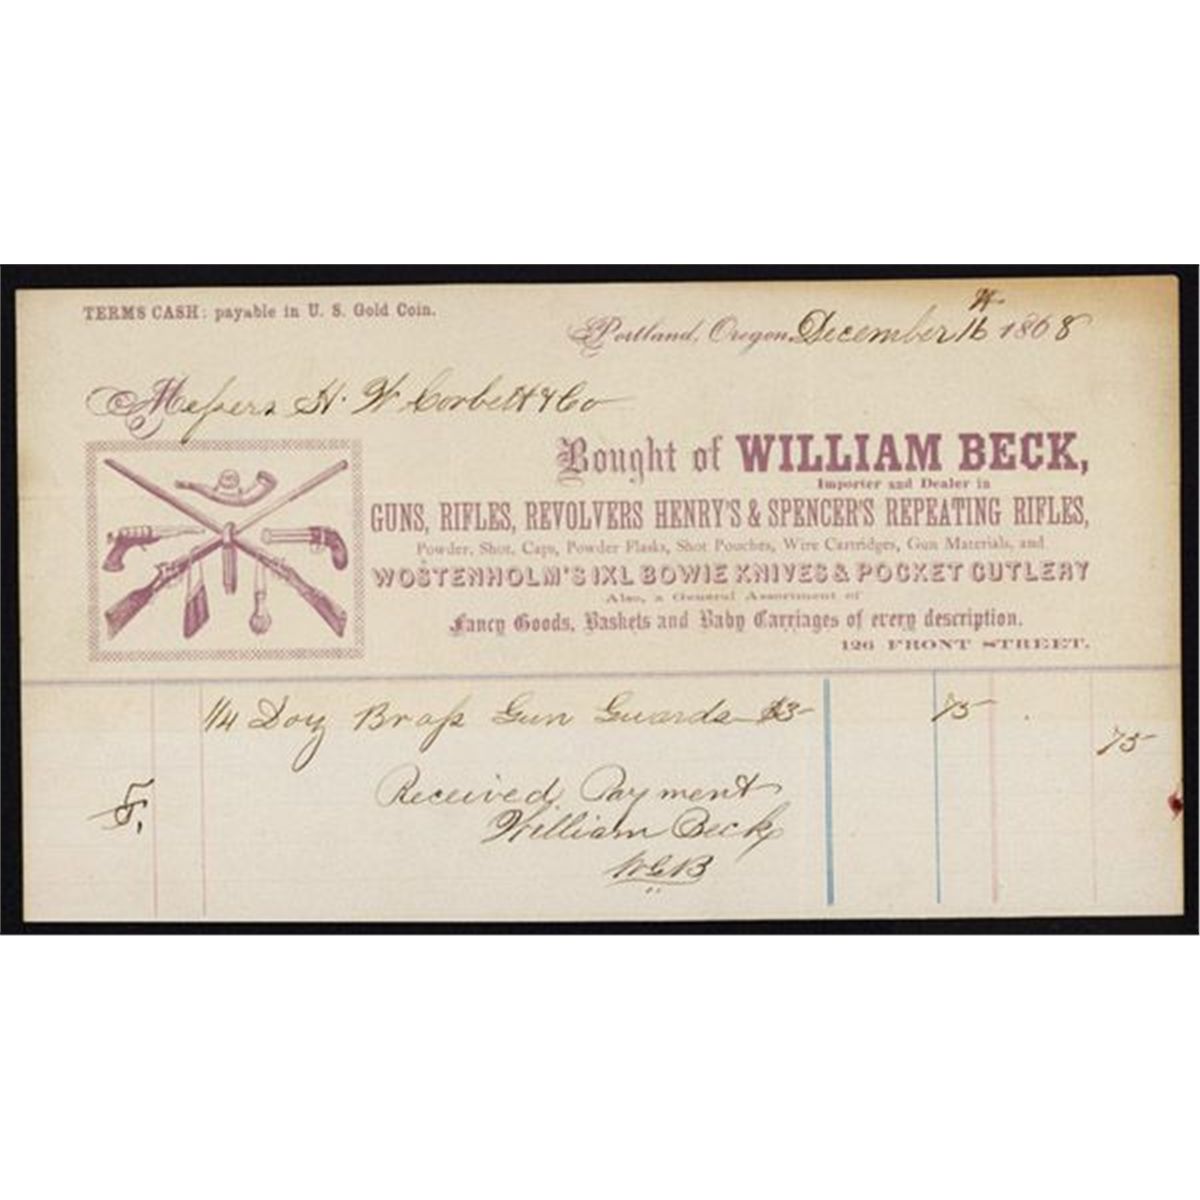 TERMS CASH: payable in U. S. Gold Coin.
Portland, Oregon, December 16th 1868
Messers H. W Corbett & Co
Bought of WILLIAM BECK,
Importer and Dealer in
GUNS, RIFLES, REVOLVERS HENRY'S & SPENCER'S REPEATING RIFLES,
Powder, Shot, Caps, Powder Flasks, Shot Pouches, Wire Cartridges, Gun Materials, and
WOSTENHOLM'S IXL BOWIE KNIVES & POCKET CUTLERY
Also, a General Assortment of
Fancy Goods, Baskets and Baby Carriages of every description.
126 FRONT STREET.
1/4 Doz Brass Gun Guards $3- 75
75
Received Payment
William Beck
WGB